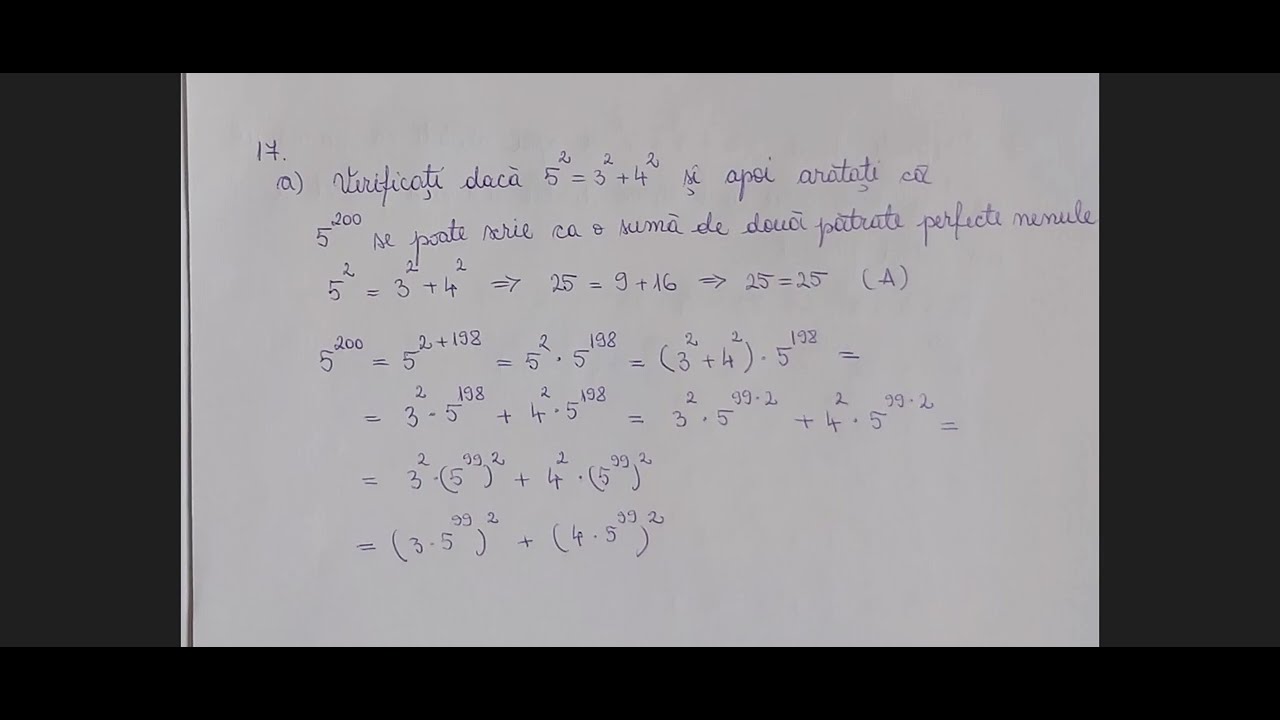 17.
a) Verificați dacă 5² = 3² + 4² și apoi arătați că
5²⁰⁰ se poate scrie ca o sumă de două pătrate perfecte nenule
5² = 3² + 4² ⇒ 25 = 9 + 16 ⇒ 25 = 25 (A)
5²⁰⁰ = 5²⁺¹⁹⁸ = 5² · 5¹⁹⁸ = (3² + 4²) · 5¹⁹⁸ =
= 3² · 5¹⁹⁸ + 4² · 5¹⁹⁸ = 3² · 5⁹⁹·² + 4² · 5⁹⁹·² =
= 3² · (5⁹⁹)² + 4² · (5⁹⁹)²
= (3 · 5⁹⁹)² + (4 · 5⁹⁹)²